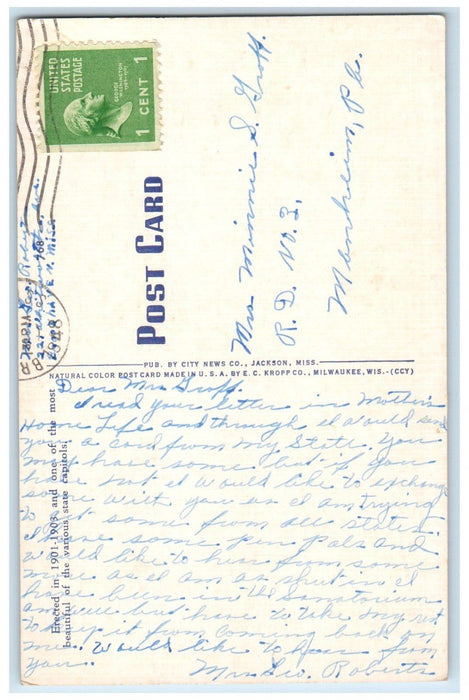 UNITED
STATES
POSTAGE
GEORGE
WASHINGTON
1 CENT 1
POST CARD
Mrs Minnie S. Groff.
R. D. No. 3,
Manheim, Pa.
PUB. BY CITY NEWS CO., JACKSON, MISS.
NATURAL COLOR POST CARD MADE IN U. S. A. BY E. C. KROPP CO., MILWAUKEE, WIS.-(CCY)
Erected in 1901-1903 and one of the most
beautiful of the various state capitols.
Dear Mrs Groff.
I read your letter in Mother's
Home Life and through I would send
you a card from my State. You
may have some but if you
have not I would like to exchange
some with you as I am trying
to get some from all states.
I have some pen pals and
would like to hear from some
more as I am as shut in I
have been in the Sanatorium
and well but have to take my rest
to keep it from coming back on
me. would like to hear from
you.
Mrs Geo. Roberts